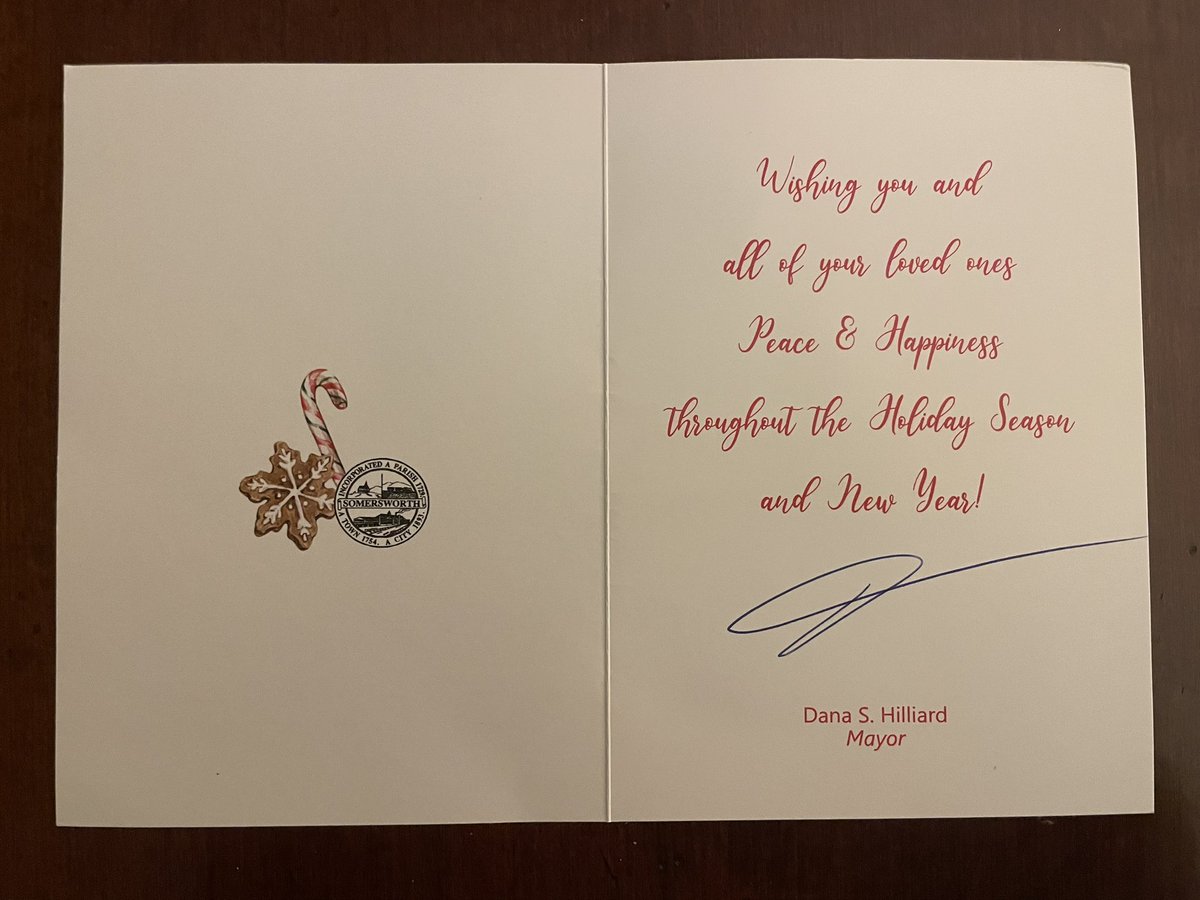 INCORPORATED A PARISH 1729
SOMERSWORTH
A TOWN 1754. A CITY 1893.
Wishing you and
all of your loved ones
Peace & Happiness
throughout the Holiday Season
and New Year!
Dana S. Hilliard
Mayor